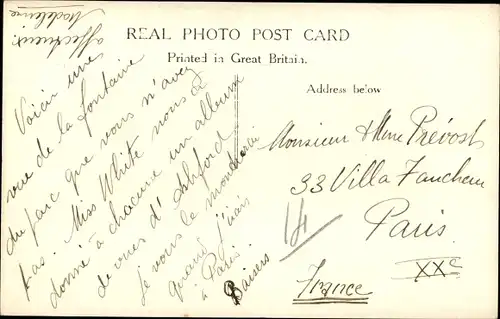 affectueux
Madeleine
REAL PHOTO POST CARD
Printed in Great Britain.
Address below
Voici une
vue de la fontaine
du parc que vous n'avez
pas. Miss White nous a
donné à chacune un album
de vues d'Ashford
je vous le montrerai
quand j'irais
à Paris.
Baisers
Monsieur & Mme Prévost
33 Villa Faucheur
Paris
XXe
France
14